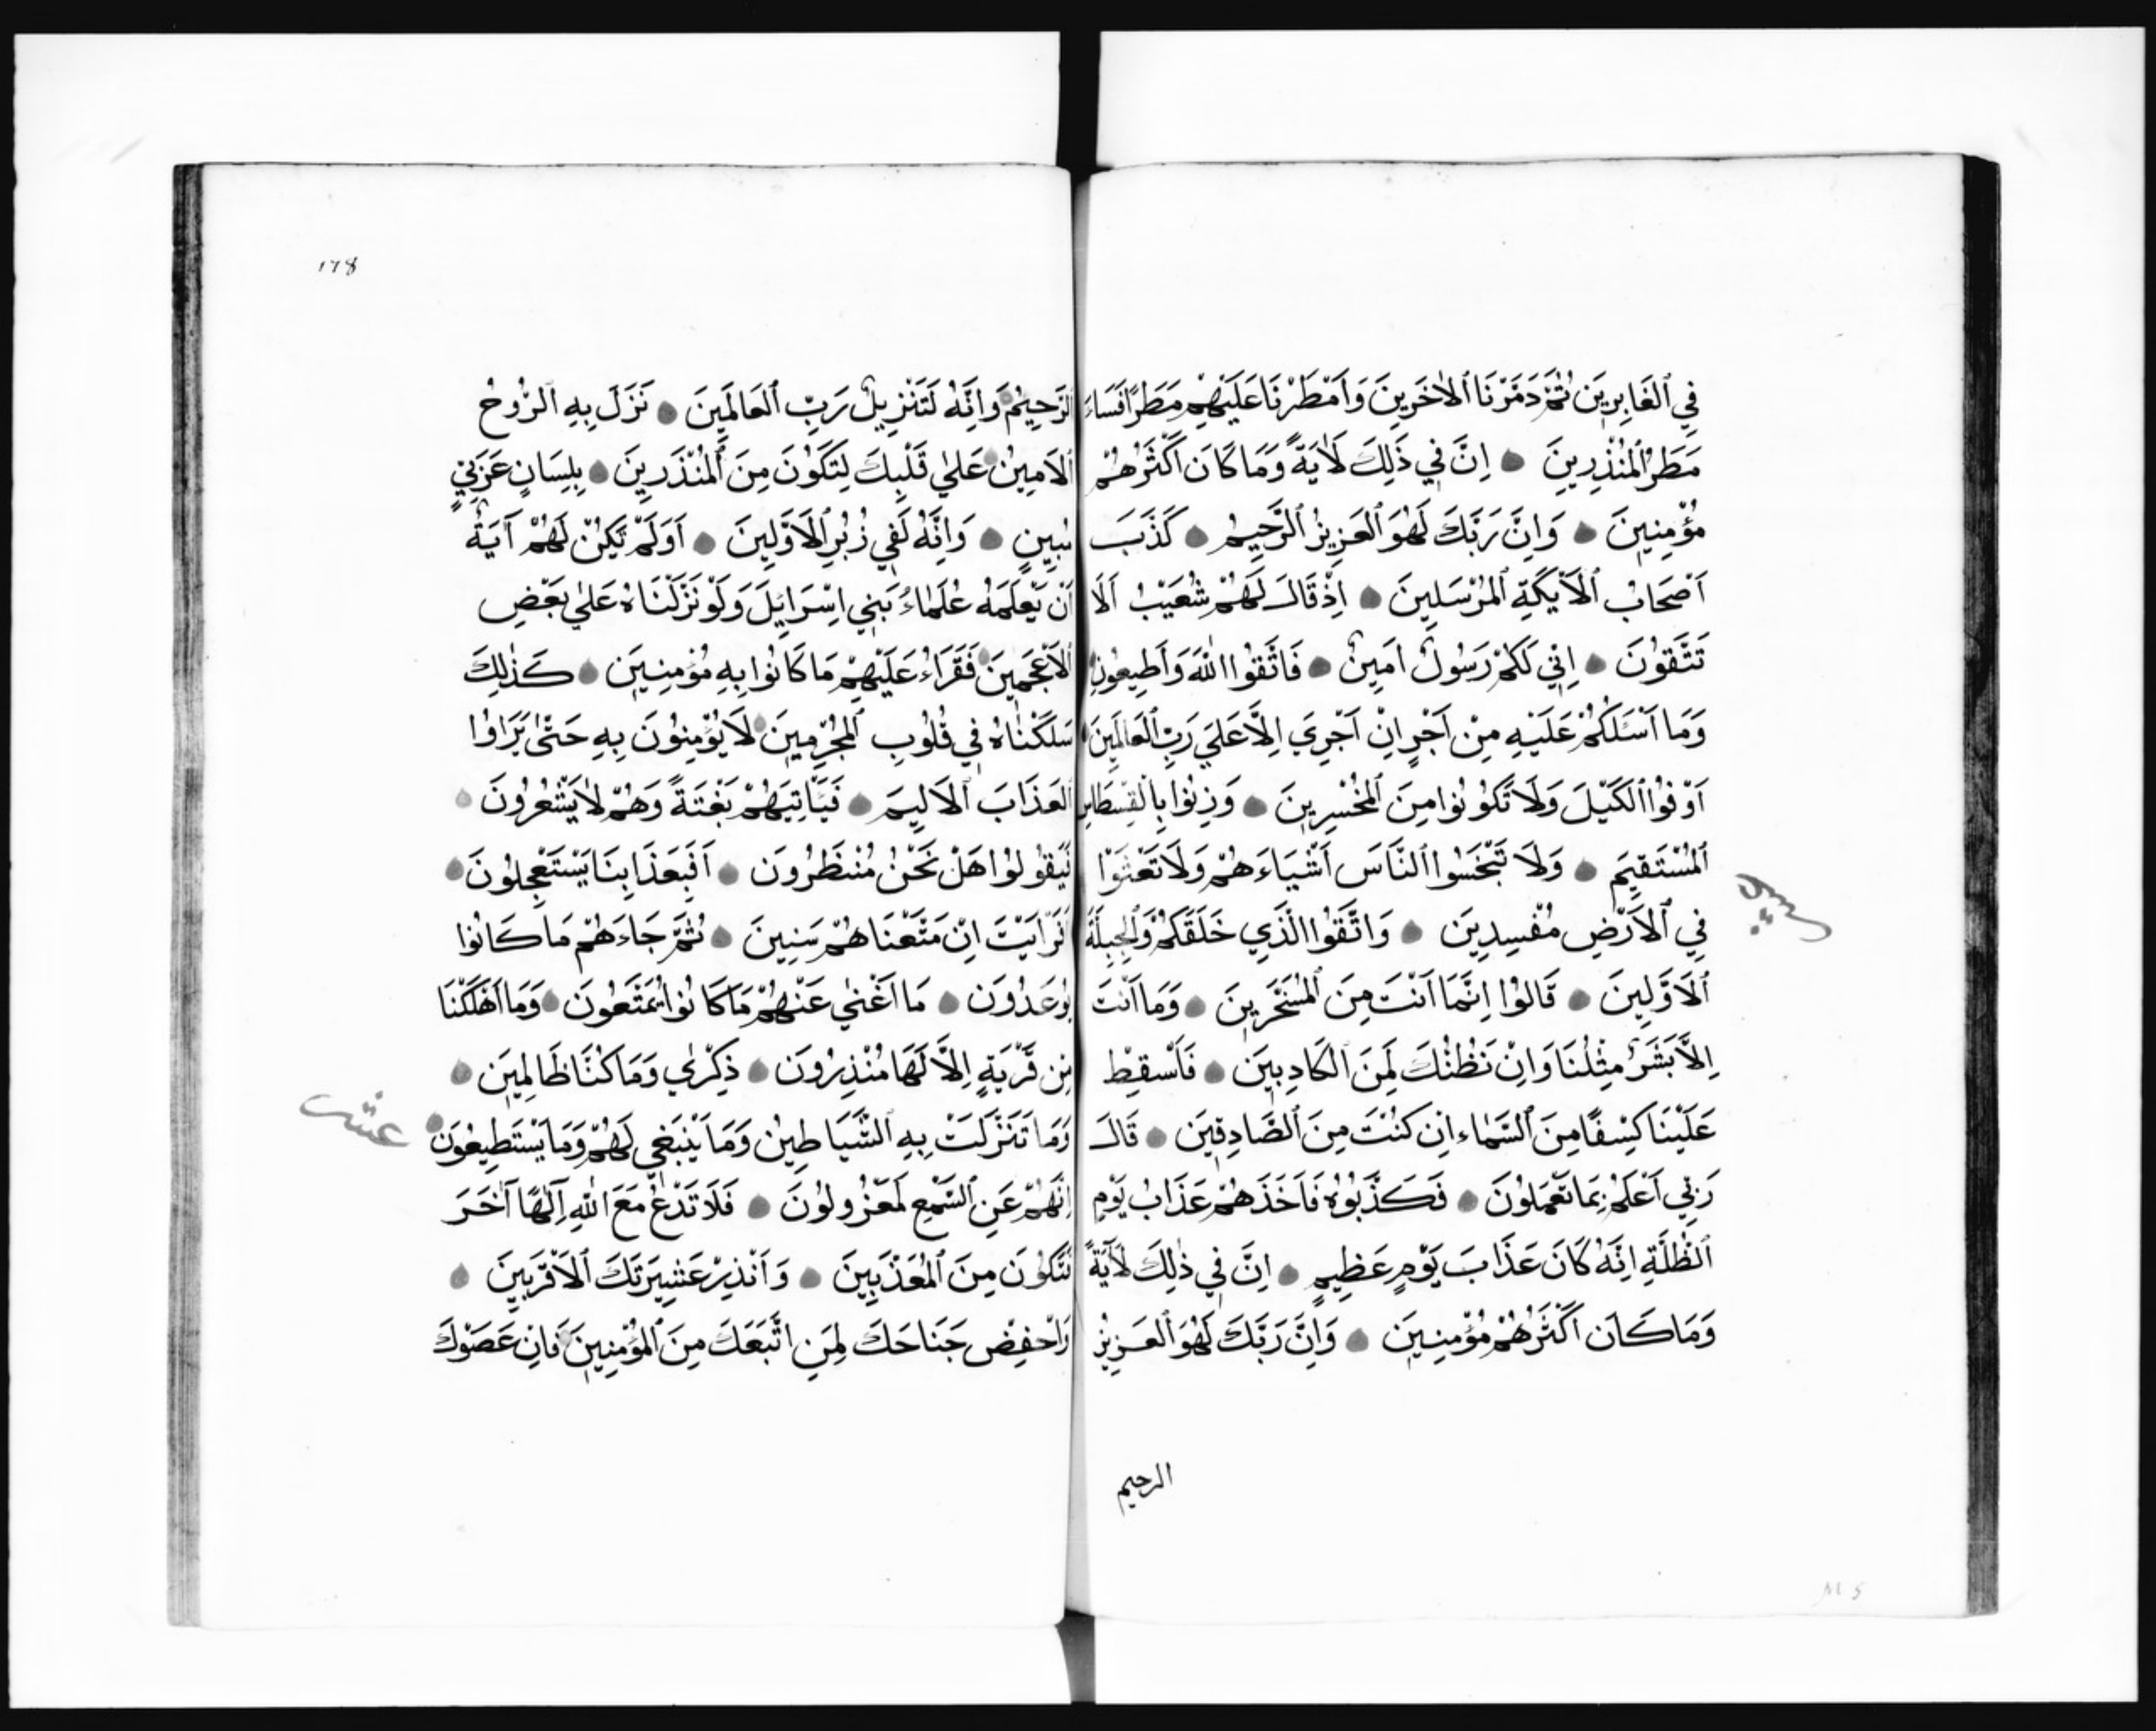 فِي ٱلْغَابِرِينَ ثُمَّ دَمَّرْنَا ٱلْاٰخَرِينَ وَاَمْطَرْنَا عَلَيْهِمْ مَطَرًا فَسَاءَ
مَطَرُ ٱلْمُنْذِرِينَ ۝ اِنَّ فِي ذَلِكَ لَاٰيَةً وَمَا كَانَ اَكْثَرُهُمْ
مُؤْمِنِينَ ۝ وَاِنَّ رَبَّكَ لَهُوَ ٱلْعَزِيزُ ٱلرَّحِيمُ ۝ كَذَّبَ
اَصْحَابُ ٱلْاَيْكَةِ ٱلْمُرْسَلِينَ ۝ اِذْ قَالَ لَهُمْ شُعَيْبُ اَلَا
تَتَّقُونَ ۝ اِنِّي لَكُمْ رَسُولٌ اَمِينٌ ۝ فَاتَّقُوا اللّٰهَ وَاَطِيعُونِ
وَمَا اَسْئَلُكُمْ عَلَيْهِ مِنْ اَجْرٍ اِنْ اَجْرِيَ اِلَّا عَلَي رَبِّ ٱلْعَالَمِينَ ۝
اَوْفُوا ٱلْكَيْلَ وَلَا تَكُونُوا مِنَ ٱلْمُخْسِرِينَ ۝ وَزِنُوا بِالْقِسْطَاسِ
ٱلْمُسْتَقِيمِ ۝ وَلَا تَبْخَسُوا ٱلنَّاسَ اَشْيَاءَهُمْ وَلَا تَعْثَوْا
فِي ٱلْاَرْضِ مُفْسِدِينَ ۝ وَاتَّقُوا الَّذِي خَلَقَكُمْ وَٱلْجِبِلَّةَ
ٱلْاَوَّلِينَ ۝ قَالُوا اِنَّمَا اَنْتَ مِنَ ٱلْمُسَحَّرِينَ ۝ وَمَا اَنْتَ
اِلَّا بَشَرٌ مِثْلُنَا وَاِنْ نَظُنُّكَ لَمِنَ ٱلْكَاذِبِينَ ۝ فَاَسْقِطْ
عَلَيْنَا كِسْفًا مِنَ ٱلسَّمَاءِ اِنْ كُنْتَ مِنَ ٱلصَّادِقِينَ ۝ قَالَ
رَبِّي اَعْلَمُ بِمَا تَعْمَلُونَ ۝ فَكَذَّبُوهُ فَاَخَذَهُمْ عَذَابُ يَوْمِ
ٱلظُّلَّةِ اِنَّهُ كَانَ عَذَابَ يَوْمٍ عَظِيمٍ ۝ اِنَّ فِي ذٰلِكَ لَاٰيَةً
وَمَا كَانَ اَكْثَرُهُمْ مُؤْمِنِينَ ۝ وَاِنَّ رَبَّكَ لَهُوَ ٱلْعَزِيزُ
الرحيم
178
ٱلرَّحِيمُ ۝ وَاِنَّهُ لَتَنْزِيلُ رَبِّ ٱلْعَالَمِينَ ۝ نَزَلَ بِهِ ٱلرُّوحُ
ٱلْاَمِينُ ۝ عَلٰي قَلْبِكَ لِتَكُونَ مِنَ ٱلْمُنْذَرِينَ ۝ بِلِسَانٍ عَرَبِيٍّ
مُبِينٍ ۝ وَاِنَّهُ لَفِي زُبُرِ ٱلْاَوَّلِينَ ۝ اَوَلَمْ تَكُنْ لَهُمْ آيَةٌ
اَنْ يَعْلَمَهُ عُلَمٰاءُ بَنِي اِسْرَايِلَ وَلَوْ نَزَّلْنَاهُ عَلٰي بَعْضِ
ٱلْاَعْجَمِينَ ۝ فَقَرَاَءُ عَلَيْهِمْ مَا كَانُوا بِهِ مُؤْمِنِينَ ۝ كَذٰلِكَ
سَلَكْنٰاهُ فِي قُلُوبِ ٱلْمُجْرِمِينَ ۝ لَا يُؤْمِنُونَ بِهِ حَتّٰي يَرَاوُا
ٱلْعَذَابَ ٱلْاَلِيمَ ۝ فَيَاْتِيَهُمْ بَغْتَةً وَهُمْ لٰا يَشْعُرُونَ ۝
فَيَقُولُوا هَلْ نَحْنُ مُنْظَرُونَ ۝ اَفَبِعَذَابِنَا يَسْتَعْجِلُونَ ۝
اَفَرَاَيْتَ اِنْ مَتَّعْنَاهُمْ سَنِينَ ۝ ثُمَّ جَاءَهُمْ مَا كَانُوا
يُوعَدُونَ ۝ مَا اَغْنٰي عَنْهُمْ مَا كَانُوا يُمَتَّعُونَ ۝ وَمَا اَهْلَكْنَا
مِنْ قَرْيَةٍ اِلَّا لَهَا مُنْذِرُونَ ۝ ذِكْرٰي وَمَا كُنَّا ظَالِمِينَ ۝
وَمَا تَنَزَّلَتْ بِهِ ٱلشَّيَاطِينُ وَمَا يَنْبَغِي لَهُمْ وَمَا يَسْتَطِيعُونَ ۝
عشر
اِنَّهُمْ عَنِ ٱلسَّمْعِ لَمَعْزُولُونَ ۝ فَلَا تَدْعُ مَعَ اللّٰهِ اِلٰهًا آخَرَ
فَتَكُونَ مِنَ ٱلْمُعَذَّبِينَ ۝ وَاَنْذِرْ عَشِيرَتَكَ ٱلْاَقْرَبِينَ ۝
وَاخْفِضْ جَنَاحَكَ لِمَنِ اتَّبَعَكَ مِنَ ٱلْمُؤْمِنِينَ ۝ فَاِنْ عَصَوْكَ